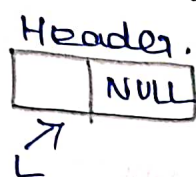 Header.
NULL
L